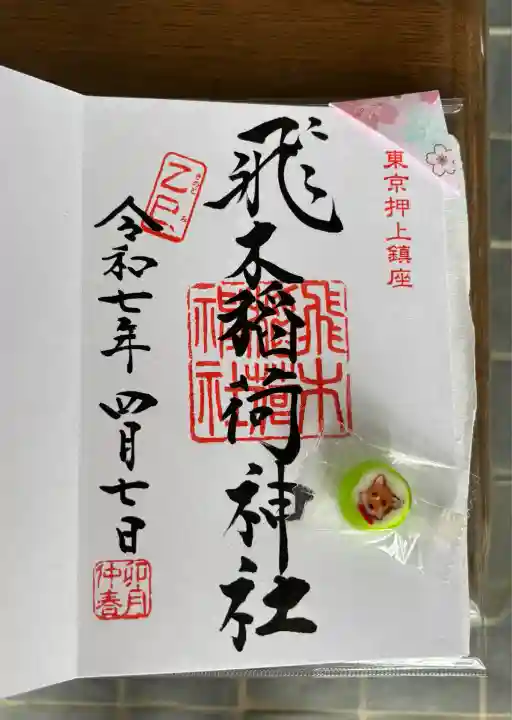 東京押上鎮座
飛木稲荷神社
飛木
稲荷
神社
乙巳
きのと み
令和七年 四月七日
卯月
仲春